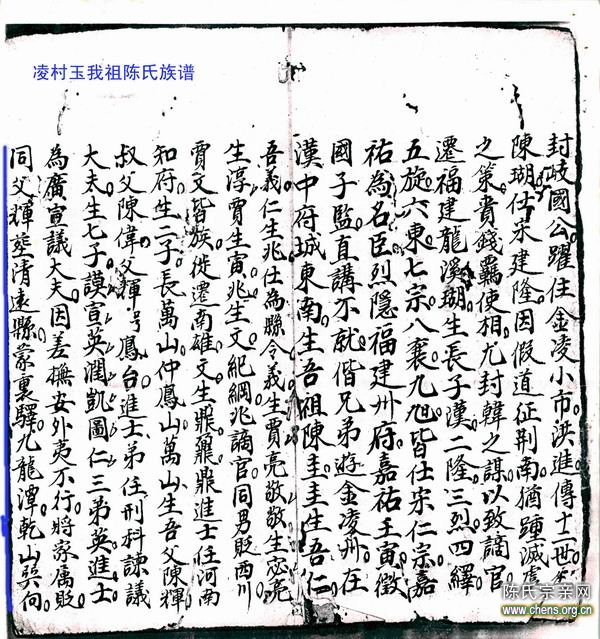 凌村玉我祖陈氏族谱
封岐國公躍住金凌小市洪進傳十一世
陳瑚仕宋建隆因假道征荆南猶踵滅虞
之策貴錢羈使相尤封韓之謀以致謫官
遷福建龍溪瑚生長子漢二隆三烈四繹
五旋六東七宗八襄九旭皆仕宋仁宗嘉
祐為名臣烈隱福建州府嘉祐壬寅徵
國子監直講不就偕兄弟遊金凌州在
漢中府城東南生吾祖陳圭圭生吾仁
吾義仁生兆仕為縣令義生賈亮敬敬生宓亮
生淳賈生寅兆生文紀綱兆謫官同男貶西川
賈文皆族徙遷南雄文生鼎鼐鼎進士任河南
知府生二子長萬山仲鳳山萬山生吾父陳輝
叔父陳偉父輝号鳳台進士弟任刑科諫議
大夫生七子謨宣英潤凱圖仁三弟英進士
為廣宣議大夫因差撫安外夷不行將家属貶
同父輝塟清遠縣豪裏驛九龍潭乾山巽向
陈氏宗亲网
www.chens.org.cn